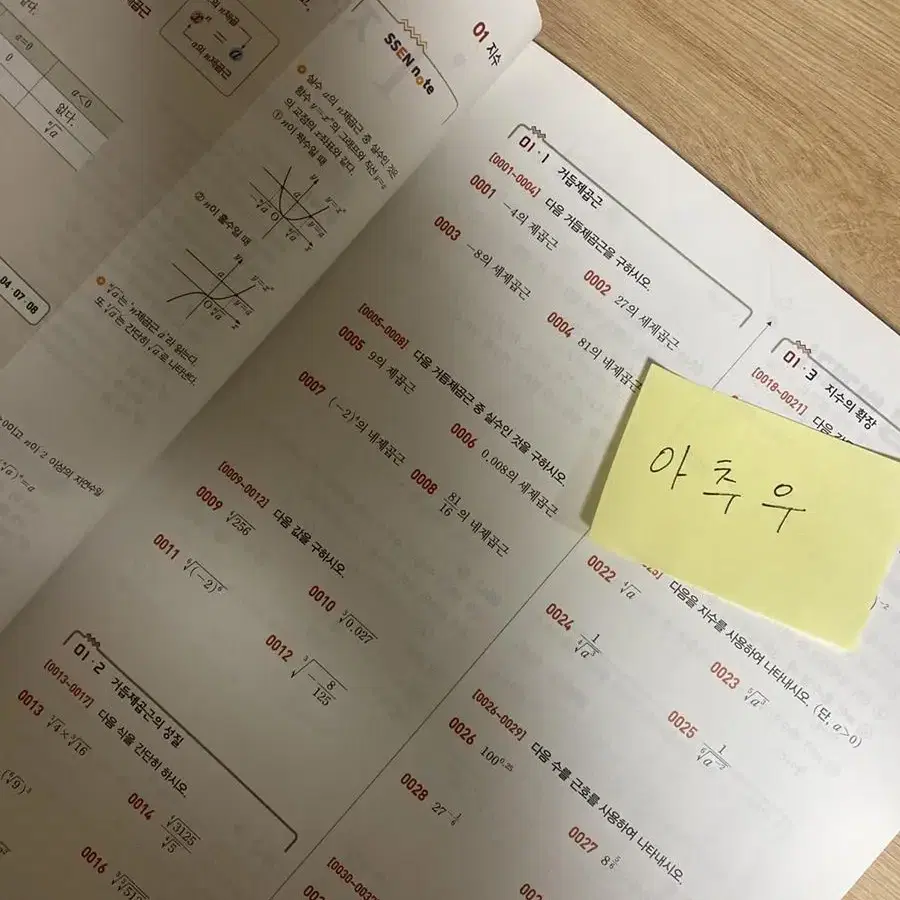 a=0
a<0
0
없다.
ⁿ√a
a의 n제곱근
04·07·08
이고 n이 2 이상의 자연수일
SSEN note
실수 a의 n제곱근 중 실수인 것은
함수 y=xⁿ의 그래프와 직선 y=a
의 교점의 x좌표와 같다.
① n이 짝수일 때
y=xⁿ
y=a
② n이 홀수일 때
y=xⁿ
y=a
ⁿ√a는 'n제곱근 a'라 읽는다.
또 ²√a는 간단히 √a로 나타낸다.
01 지수
01·1 거듭제곱근
[0001~0004] 다음 거듭제곱근을 구하시오.
0001 -4의 제곱근
0002 27의 세제곱근
0003 -8의 세제곱근
0004 81의 네제곱근
[0005~0008] 다음 거듭제곱근 중 실수인 것을 구하시오.
0005 9의 제곱근
0006 0.008의 세제곱근
0007 (-2)⁴의 네제곱근
0008 81/16의 네제곱근
[0009~0012] 다음 값을 구하시오.
0009 ⁴√256
0010 ³√0.027
0011 ⁶√(-2)⁶
0012 ³√-8/125
01·2 거듭제곱근의 성질
[0013~0017] 다음 식을 간단히 하시오.
0013 ³√4×³√16
0014 ⁴√3125/⁴√5
0016
01·3 지수의 확장
[0018~0021] 다음
아추우
다음을 지수를 사용하여 나타내시오. (단, a>0)
0022 ⁴√a
0023 ⁵√a³
0024 1/⁴√a³
0025
[0026~0029] 다음 수를 근호를 사용하여 나타내시오.
0026 100^0.25
0027 8^5/6
0028 27^-1/6